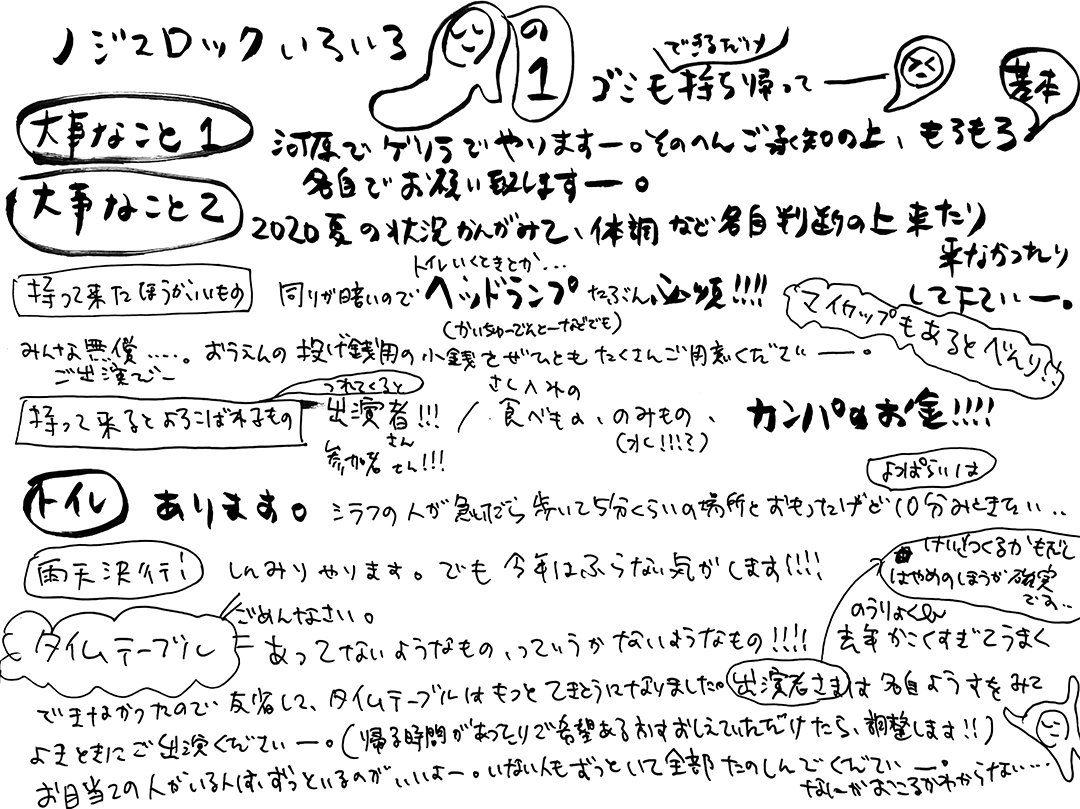 ノジスロックいろいろ
の1
できるだけ
ゴミも持ち帰ってー
基本
大事なこと1
河原でゲリラでやりますー。そのへんご承知の上、もろもろ
各自でお願い致しますー。
大事なこと2
2020夏の状況かんがみて、体調など各自判断の上来たり
来なかったり
して下さいー。
持って来たほうがいいもの
トイレいくときとか…
周りが暗いのでヘッドランプたぶん必須!!!!
(かいちゅーでんとーなどでも)
マイカップもあるとべんり!!
みんな無償‥‥。おうえんの投げ銭用の小銭をぜひともたくさんご用意くださいー。
ご出演でー
持って来るとよろこばれるもの
つれてくると
出演者!!!
さん
参加者さん!!!
/
さし入れの
食べもの、のみもの、
(水!!!?)
カンパのお金!!!!
トイレ
あります。
シラフの人が急いだら歩いて5分くらいの場所とおもったけど10分みときたい..
よっぱらいは
雨天決行!
しんみりやります。でも今年はふらない気がします!!!!
けいざつくるかもだし
はやめのほうが確実
です..
タイムテーブル
ごめんなさい。
あってないようなもの、っていうかないようなもの!!!!
のうりょく
去年かこくすぎてうまく
できなかったので反省して、タイムテーブルはもっとてきとうになりました。出演者さまは各自ようすをみて
よきときにご出演くださいー。(帰る時間があったりご希望ある方はおしえていただけたら、調整します!!)
お目当ての人がいる人は、ずっといるのがいいよー。いない人もずっといて全部たのしんでくださいー。
なにがおこるかわからない…